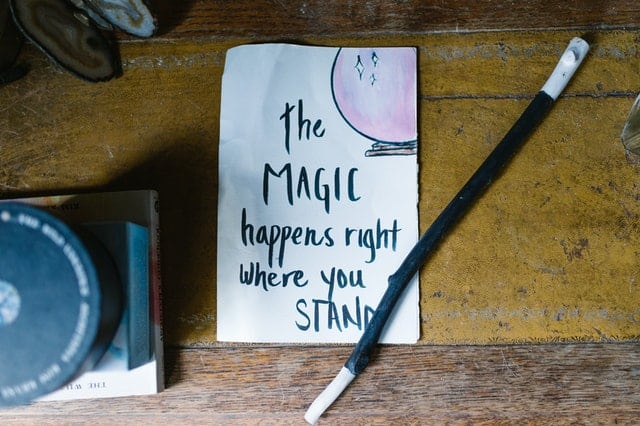 the
MAGIC
happens right
where you
STAND
THE WI